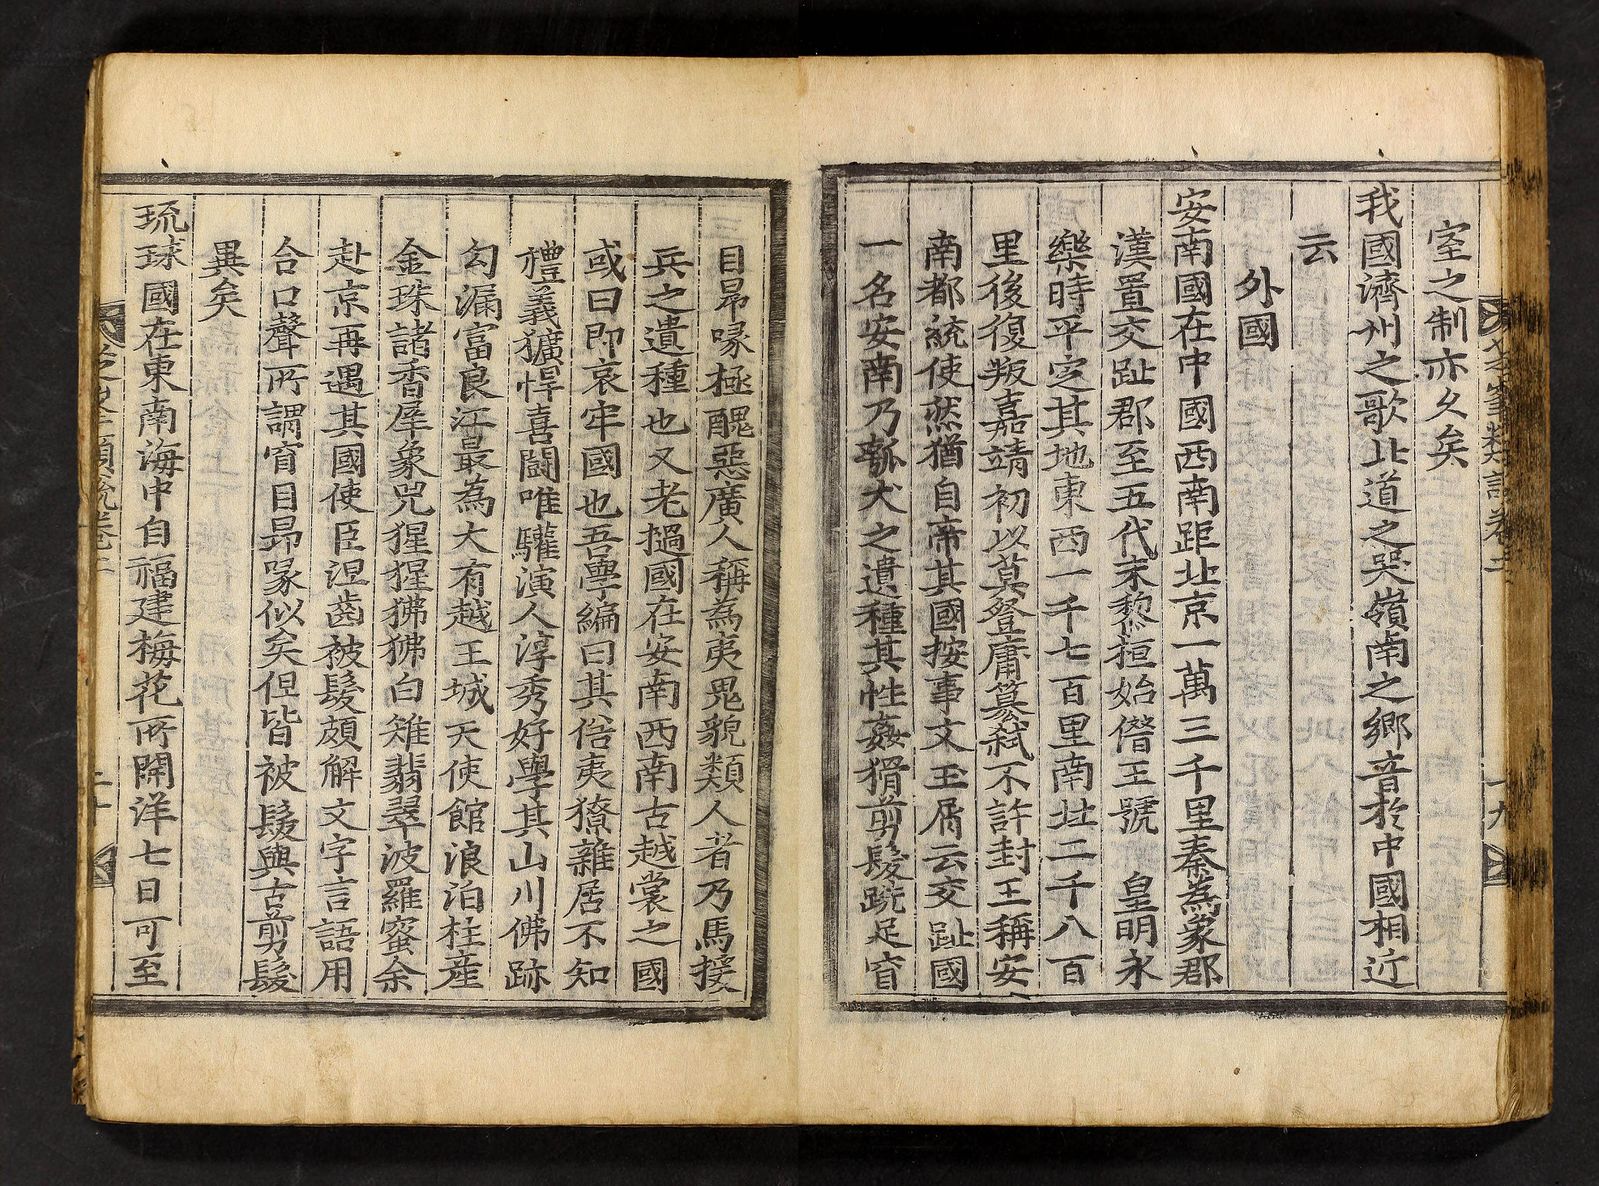 室之制亦久矣
我國濟州之歌北道之哭嶺南之鄉音於中國相近
云
外國
安南國在中國西南距北京一萬三千里秦為象郡
漢置交趾郡至五代末黎桓始僭王號 皇明永
樂時平定其地東西一千七百里南北二千八百
里後復叛嘉靖初以莫登庸簒弑不許封王稱安
南都統使然猶自帝其國按事文玉屑云交趾國
一名安南乃瓠犬之遺種其性姦猾剪髮跣足窅
目昻喙極醜惡廣人稱為夷鬼貌類人者乃馬援
兵之遺種也又老撾國在安南西南古越裳之國
或曰即哀牢國也吾學編曰其俗夷獠雜居不知
禮義獷悍喜鬪唯驩演人淳秀好學其山川佛跡
勾漏富良江最為大有越王城天使館浪泊柱産
金珠諸香犀象兕猩猩狒狒白雉翡翠波羅蜜余
赴京再遇其國使臣涅齒被髮頗解文字言語用
合口聲所謂窅目昻喙似矣但皆被髮與古剪髮
異矣
琉球國在東南海中自福建梅花所開洋七日可至
芝峯類說卷二
十九
芝峯類說卷二
二十